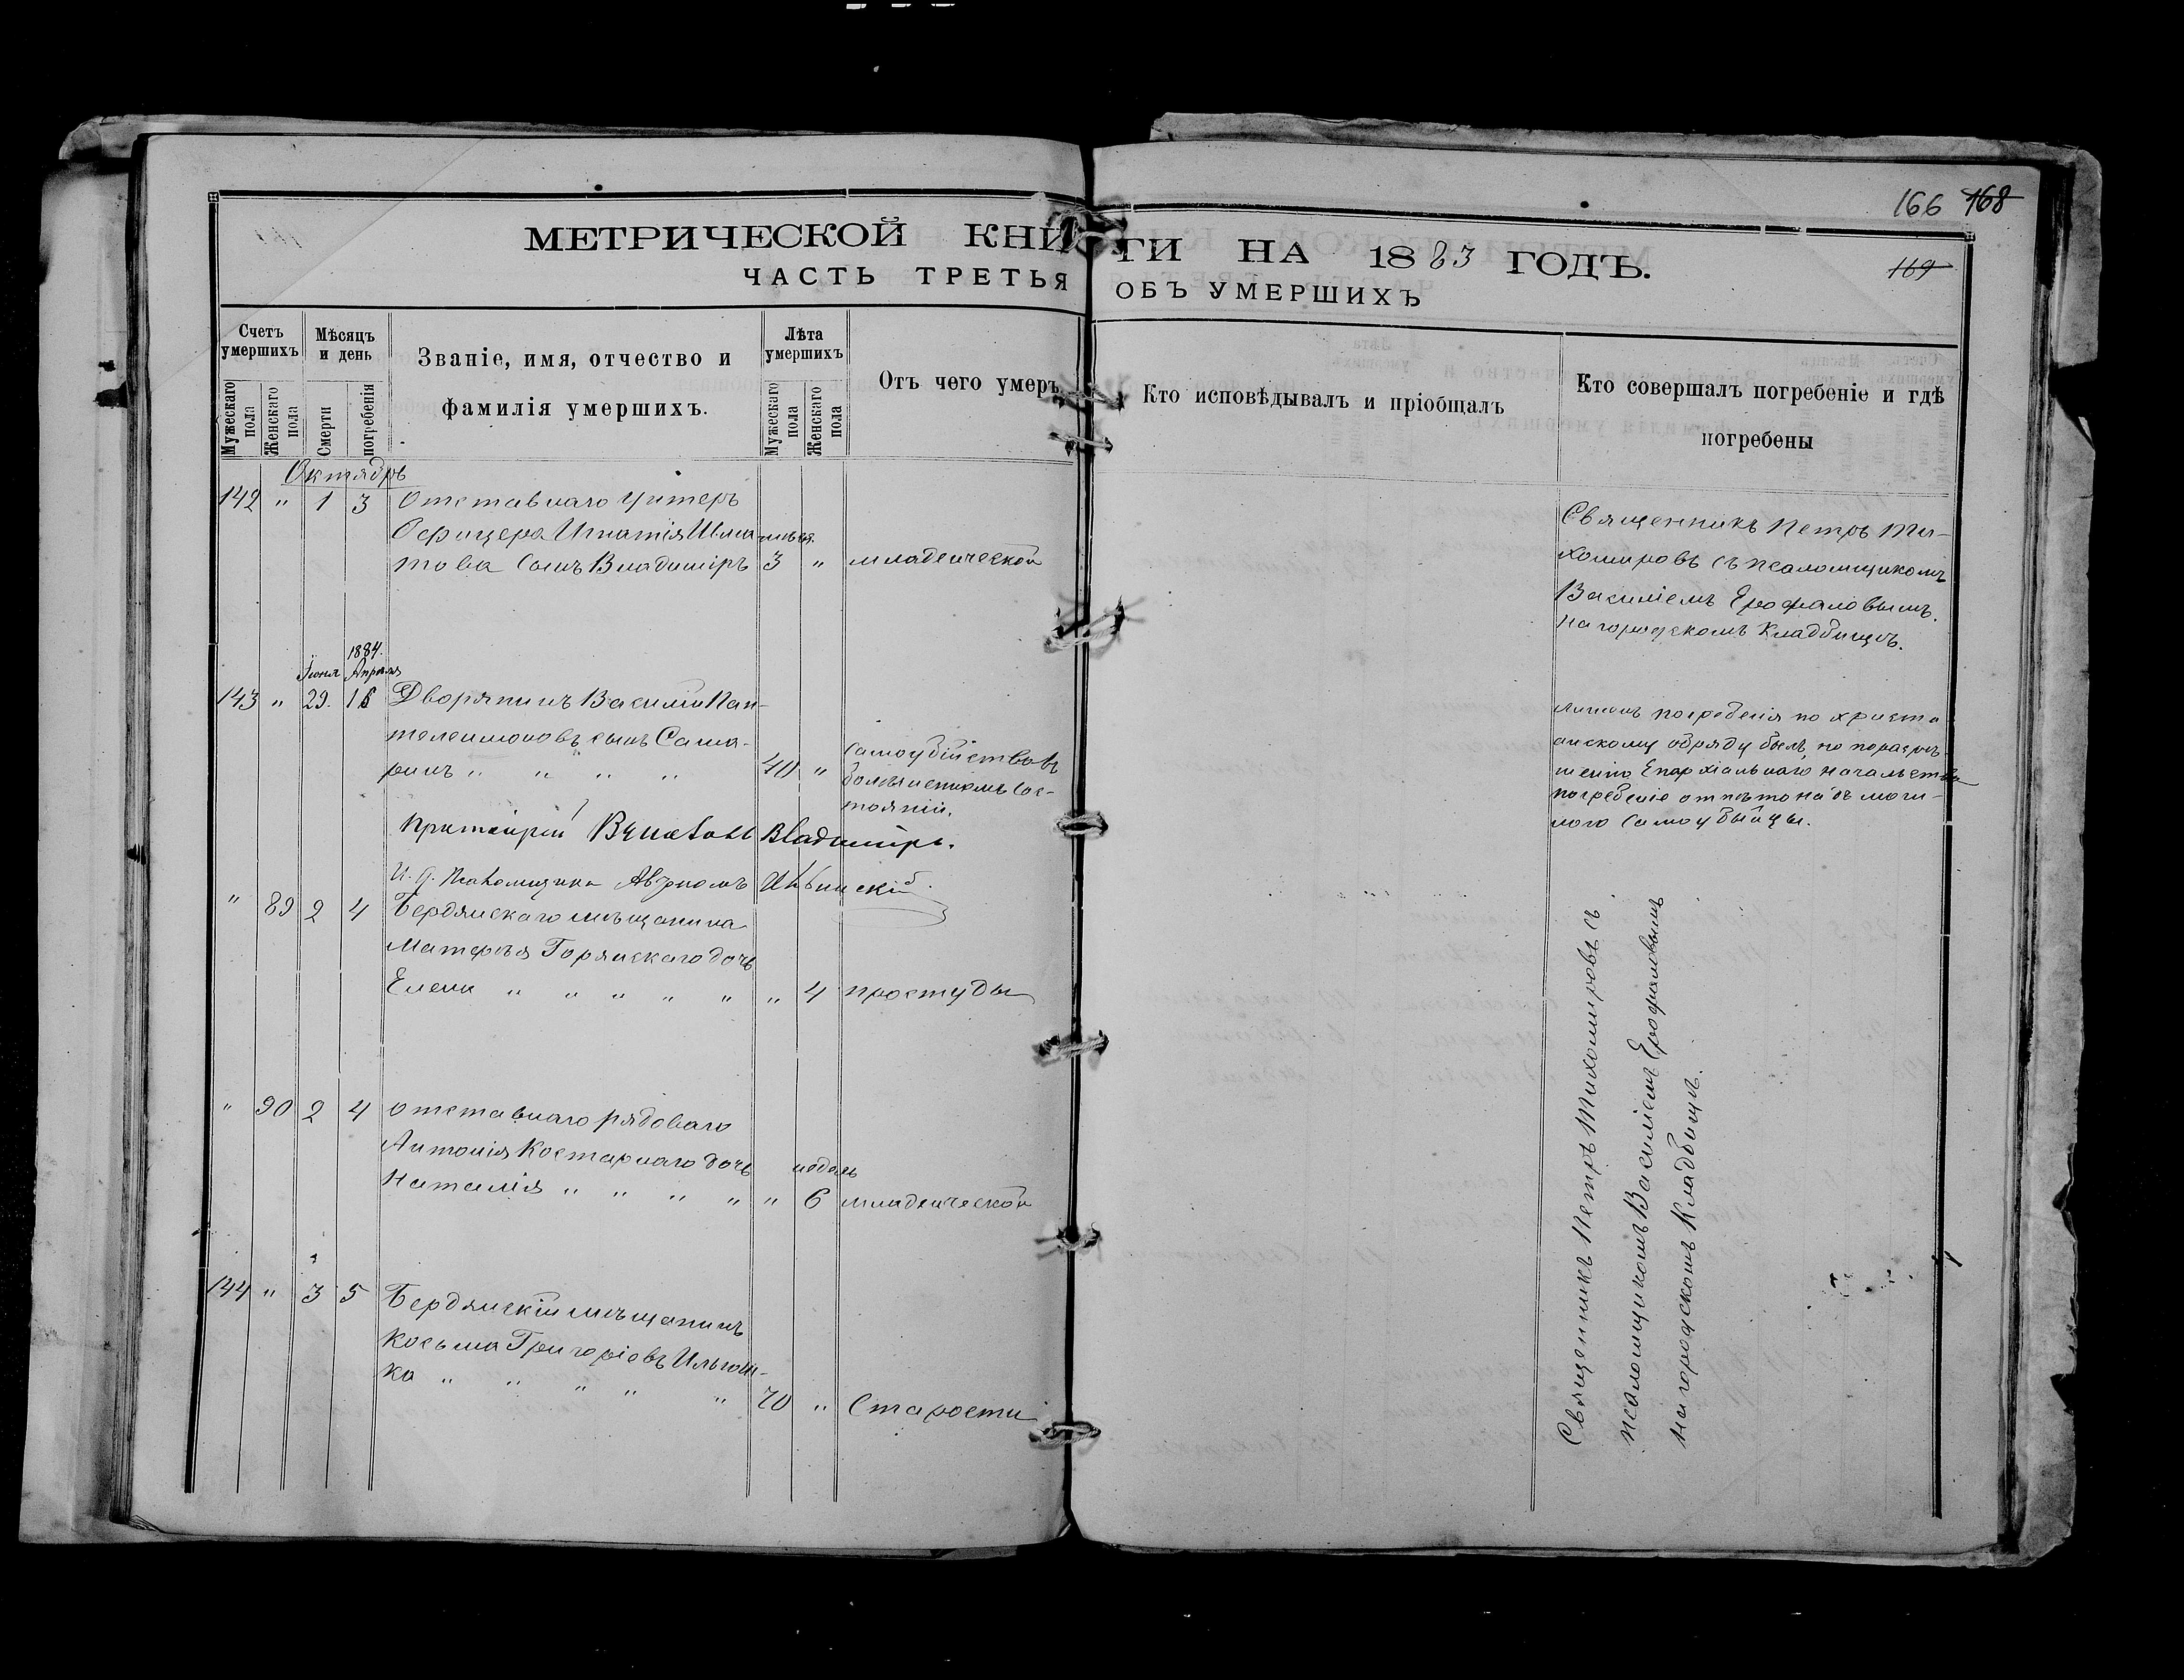 166 168
169
МЕТРИЧЕСКОЙ КНИГИ НА 1883 ГОДЪ.
ЧАСТЬ ТРЕТЬЯ ОБЪ УМЕРШИХЪ
Счетъ умершихъ
Мужескаго пола
Женскаго пола
Мѣсяцъ и день
Смерти
погребенія
Званіе, имя, отчество и
фамилія умершихъ.
Лѣта умершихъ
Мужескаго пола
Женскаго пола
Отъ чего умеръ
Кто исповѣдывалъ и пріобщалъ
Кто совершалъ погребеніе и гдѣ
погребены
Октябрь
142 " 1 3 Отставнаго Унтеръ
Офицера Игнатія
това сынъ Владиміръ 3 " младенческой
Священникъ Петръ Ти-
хомировъ съ псаломщикомъ
Василіемъ Ерофаловымъ.
На городскомъ Кладбищѣ.
1884.
Іюня Апрѣля
143 " 29. 16 Дворянинъ Василій Пан-
телеимоновъ сынъ Сама-
ринъ " " " " 40 " Самоубійство въ
болѣзненномъ сос-
тояніи.
погребенія по христі-
анскому обряду былъ, но по разрѣ-
шенію Епархіальнаго начальства
погребеніе отпѣто надъ моги-
лою самоубійцы.
Протоіерей Владиміръ.
И. д. Псаломщика
" 89 2 4 Бердянскаго мѣщанина
Матфея Горянскаго дочь
Елена " " " " " " 4 простуды
" 90 2 4 Отставнаго рядоваго
Антонія Костарнаго дочь недѣль
Наталія " " " " " 6 младенческой
144 " 3 5 Бердянскій мѣщанинъ
Косьма Григоріевъ Ильюш-
ка " " " " " 70 " Старости
Священникъ Петръ Тихомировъ съ
псаломщикомъ Василіемъ Ерофаловымъ
на городскомъ Кладбищѣ.